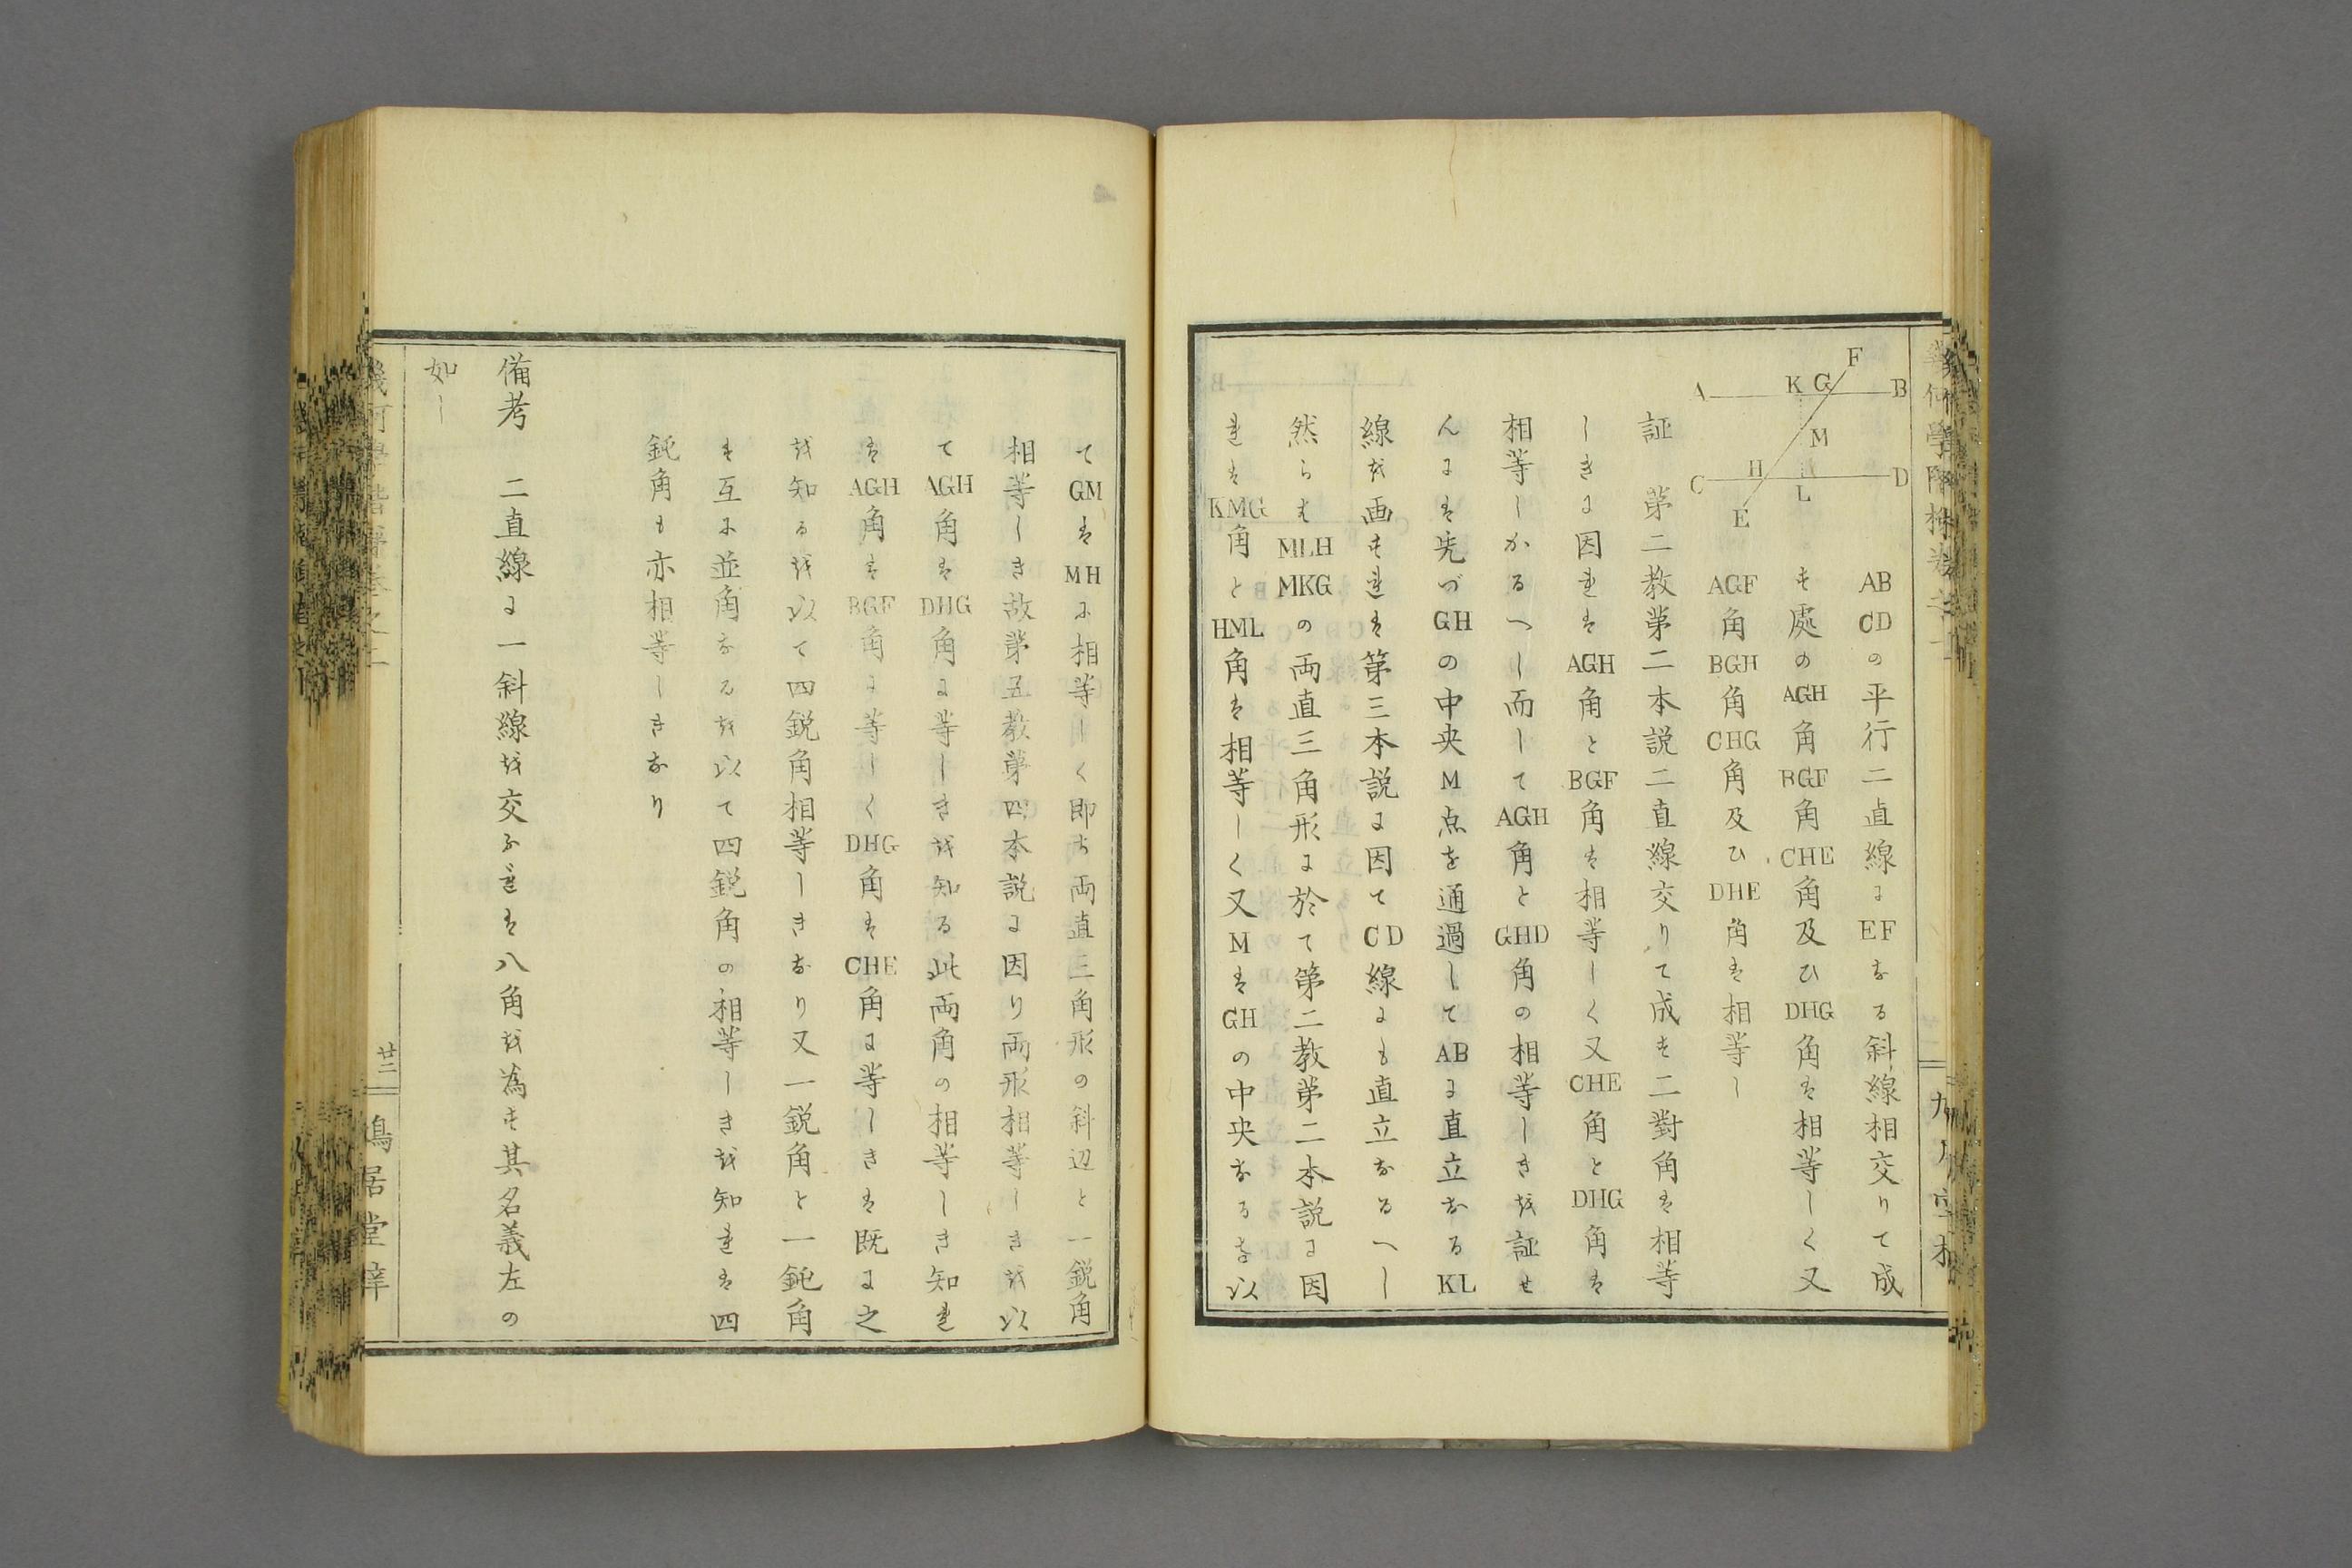 F
A K G B
M
C H L D
E
AB CDの平行二直線にEFなる斜線相交りて成
す處のAGH角BGF角CHE角及ひDHG角は相等しく又
AGF角BGH角CHG角及ひDHE角は相等し
証 第二教第二本説二直線交りて成す二對角は相等
しきに因れはAGH角とBGF角は相等しく又CHE角とDHG角は
相等しかるへし而してAGH角とGHD角の相等しきを証せ
んには先づGHの中央M点を通過してABに直立なるKL
線を画すれは第三本説に因てCD線にも直立なるへし
然らはMLH MKGの両直三角形に於て第二教第二本説に因
れはKMG角とHML角は相等しく又MはGHの中央なるを以
てGMはMHに相等しく即ち両直三角形の斜辺と一鋭角
相等しき故第五教第四本説に因り両形相等しきを以
てAGH角はDHG角に等しきを知る此両角の相等しき知れ
はAGH角はBGF角に等しくDHG角はCHE角に等しきは既に之
を知るを以て四鋭角相等しきなり又一鋭角と一鈍角
は互に並角なるを以て四鋭角の相等しきを知れは四
鈍角も亦相等しきなり
備考 二直線に一斜線を交ふれは八角を為す其名義左の
如し
廿三